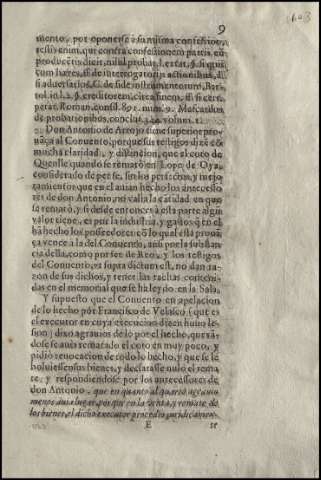 9
mento, por oponerse à su misma confession,
testis enim, qui contra confessionem partis, eū
producētis dicit, nihil probat, l. cætat, §. si qui,
cum hares, ff. de interrogatorijs actionibus, ff.
si adversarios, C. de fide instrumentorum, Bart.
Don Antonio de Arrojo tiene superior pro-
uãça al Conuento, porque sus testigos dizē cō
mucha claridad, y distincion, que el coto de
Quense quando se remató en Lope de Oya,
considerado de per se, sin los pertrechos, y mejo
ramientos que en el auian hecho los antecesso
res de don Antonio, no valia la cãtidad en que
se remató, y si desde entonces à esta parte algun
valor tiene, es por la industria, y gastos q̃ en el
hã hecho los posseedores: cõ lo qual esta proua
ça vence à la del Conuento, ansi por la substan
cia della, como por ser de Reo, y los testigos
del Conuento, vt supra dictum est, no dan ra-
zon de sus dichos, y tener las tachas conteni-
das en el memorial que se ha leydo en la Sala.
Y supuesto que el Conuento en apelacion
de lo hecho por Francisco de Velasco (que es
el executor en cuya execucion dizen huuo le-
sion) dixo agrauios de lo por el hecho, quexã-
dose se auia rematado el coto en muy poco, y
pidiò reuocacion de todo lo hecho, y que se le
boluiessen sus bienes, y declarasse nulo el rema
te: y respondiendose por los antecessores de
don Antonio, que en quanto al quarto agrauio
menos auia lugar, porque en la venta, y remate de
los bienes, el dicho executor procedio juridicamen-
E te